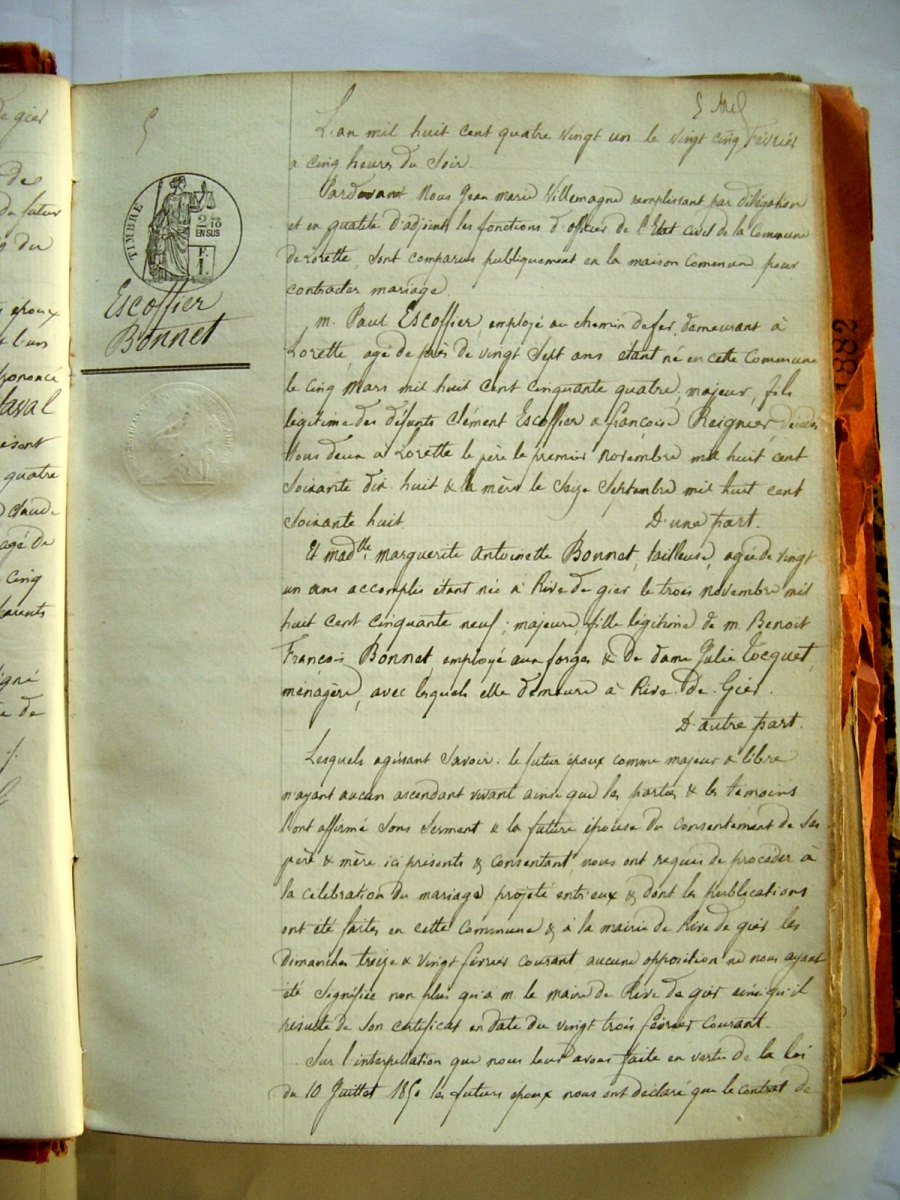 5
TIMBRE
2/10
EN SUS
F.
1.
Escoffier
Bonnet
L'an mil huit cent quatre vingt un le vingt cinq février
a cinq heures du Soir.
Pardevant Nous Jean marie Villemagne remplissant par délégation
et en qualité d'adjoint les fonctions d'officier de l'Etat civil de la Commune
de Lorette, sont comparus publiquement en la maison commune pour
contracter mariage
m. Paul Escoffier employé au chemin de fer, demeurant à
Lorette, agé de près de vingt Sept ans étant né en cette Commune
le cinq Mars mil huit cent cinquante quatre, majeur, fils
légitime des défunts Clément Escoffier & françoise Reignier, décédés
tous deux à Lorette le père le premier novembre mil huit cent
soixante dix huit & la mère le Seize Septembre mil huit cent
soixante huit D'une part.
Et madlle. marguerite Antoinette Bonnet, tailleuse, agée de vingt
un ans accomplis étant née à Rive de gier le trois novembre mil
huit cent cinquante neuf; majeure, fille légitime de m. Benoit
François Bonnet, employé aux forges & de dame Julie Tocquet,
ménagère, avec lesquels elle demeure à Rive-de-Gier.
D'autre part.
Lesquels agissant Savoir: le futur époux comme majeur & libre
n'ayant aucun ascendant vivant ainsi que les parties & les témoins
l'ont affirmé sous Serment & la future épouse du consentement de Ses
père & mère ici présents & consentant, nous ont requis de procéder à
la célébration du mariage projeté entr'eux & dont les Publications
ont été faites en cette Commune & à la mairie de Rive de gier les
Dimanches treize & vingt février courant aucune opposition ne nous ayant
été Signifiée non plus qu'a m. le maire de Rive de gier ainsi qu'il
résulte de Son certificat en date du vingt trois février courant.
Sur l'interpellation que nous leur avons faite en vertu de la loi
du 10 Juillet 1850 les futurs époux nous ont déclaré que le contrat de
1882